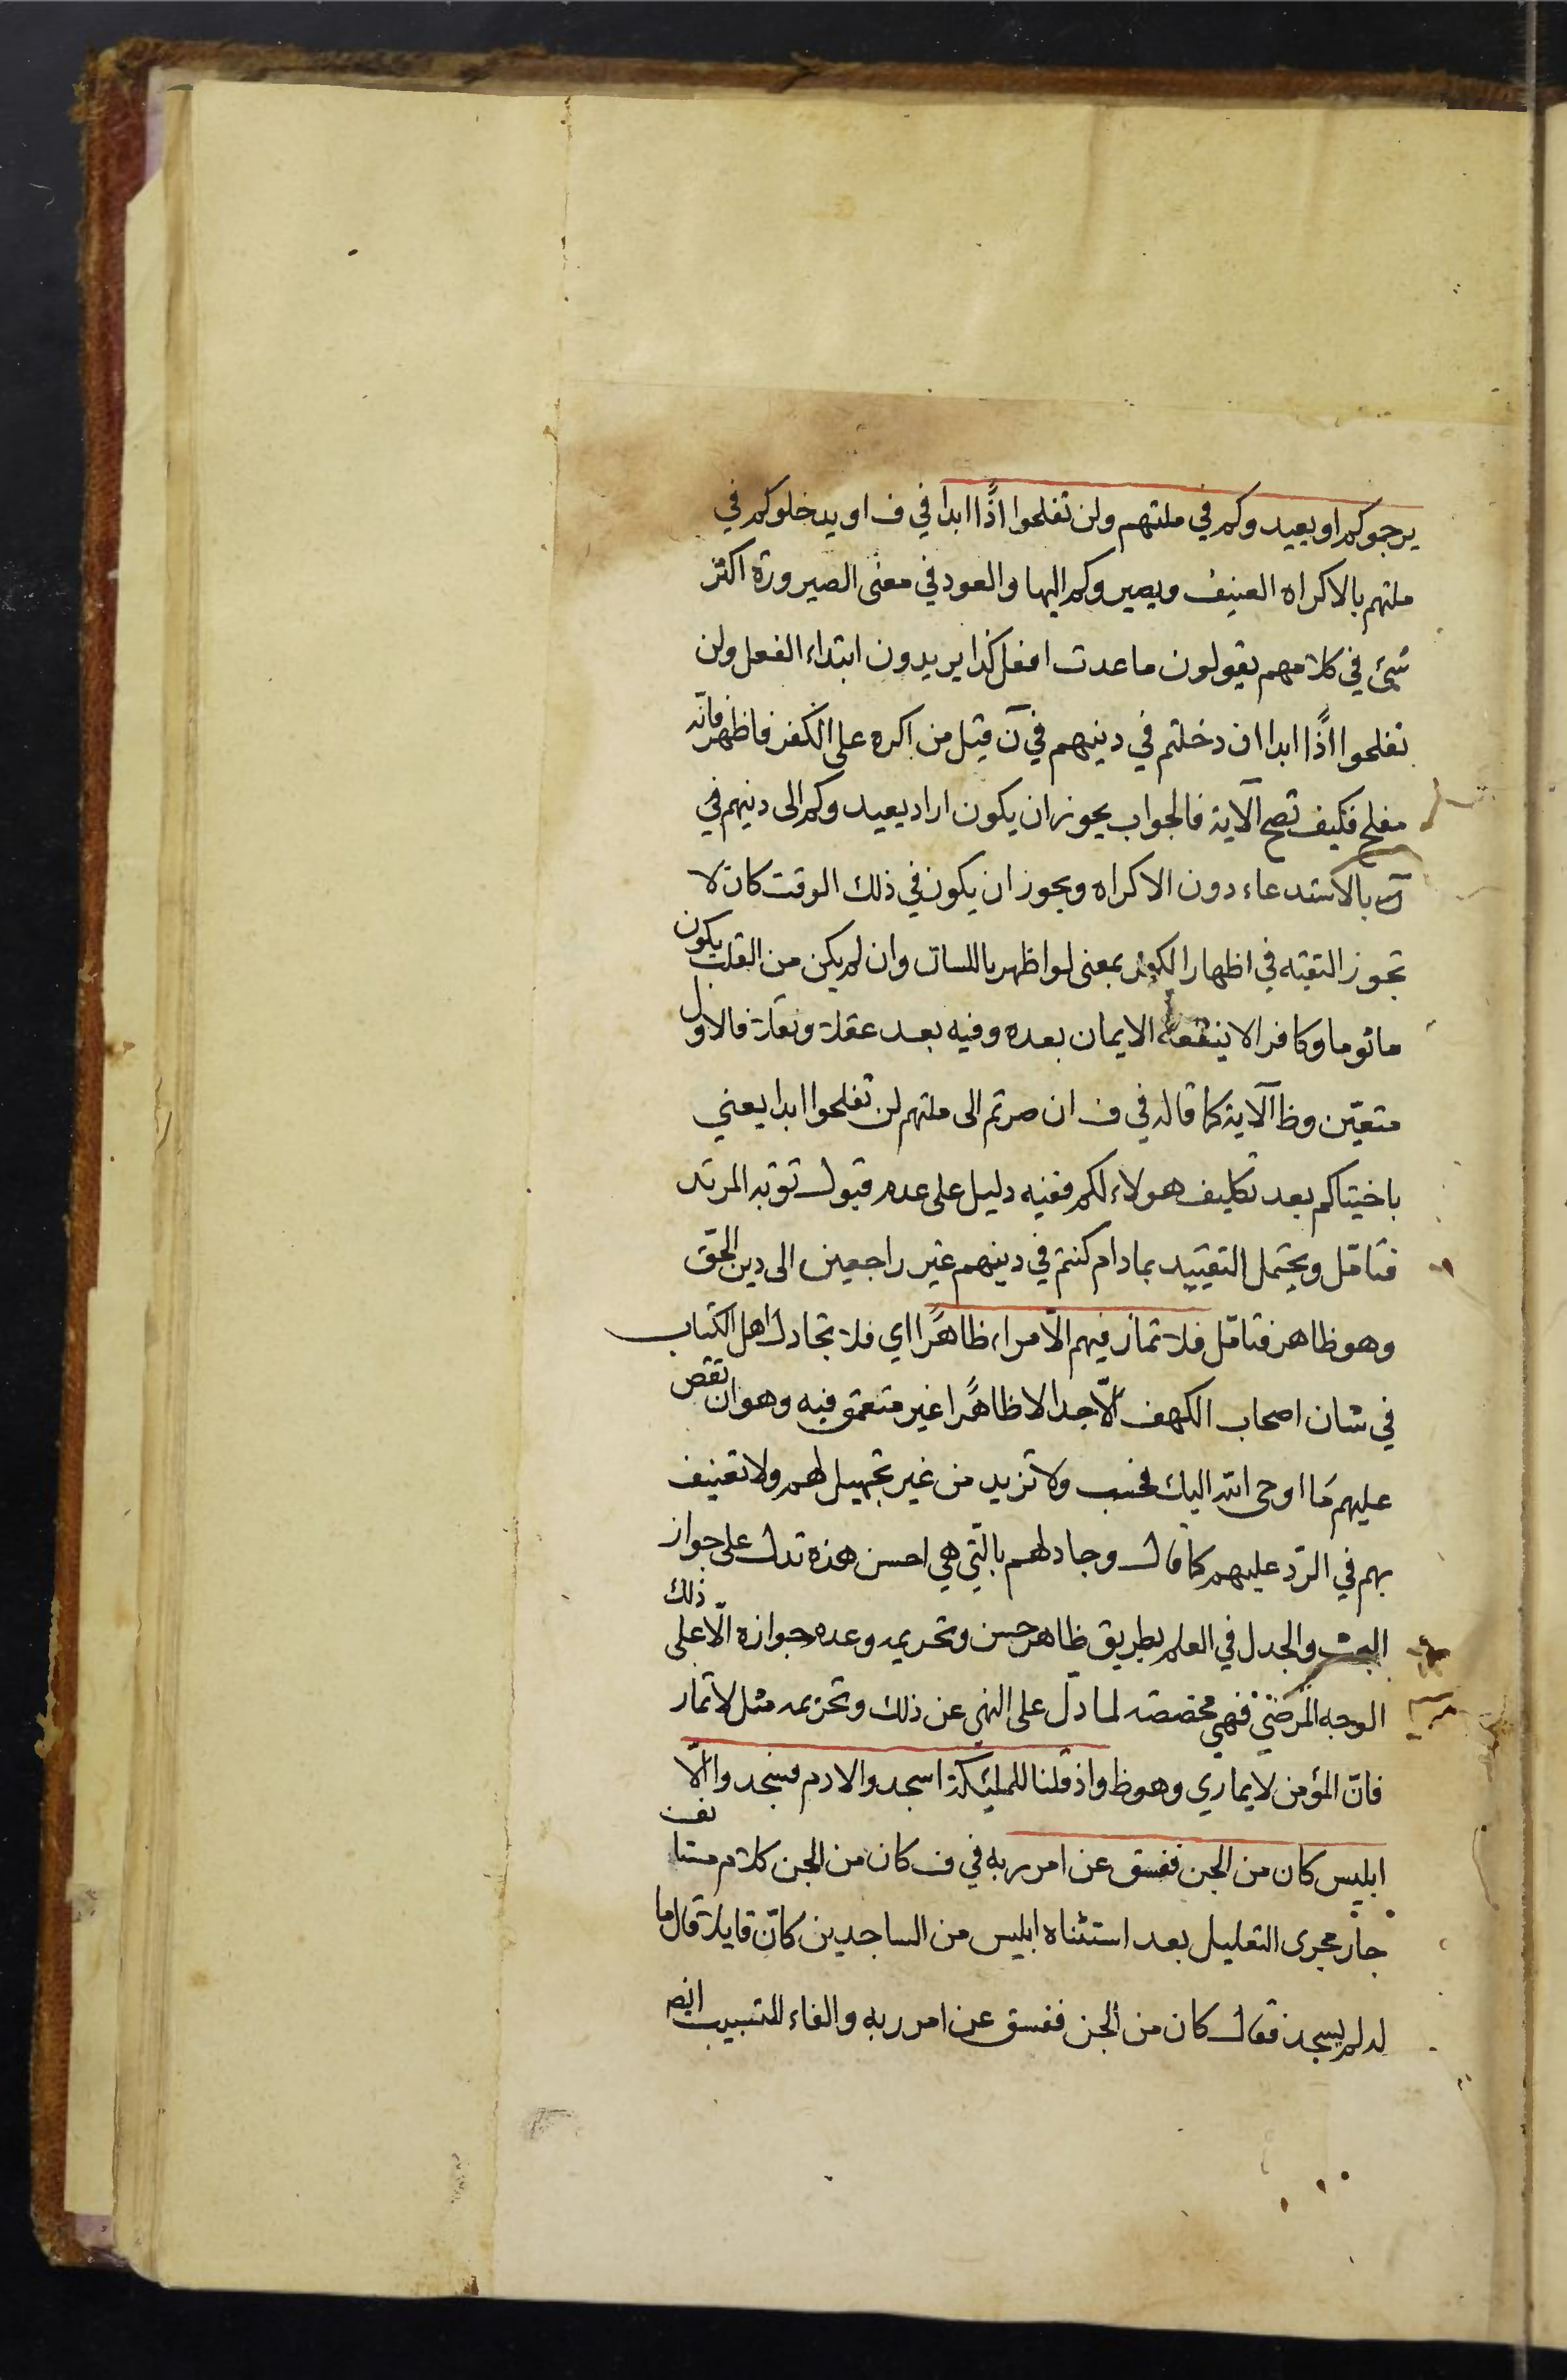 يرجموكم او يعيدوكم في ملتهم ولن تفلحوا اذًا ابدا في ف او يدخلوكم في
ملتهم بالاكراه العنيف ويصيروكم اليها والعود في معنى الصيرورة اكثر
شيئ في كلامهم يقولون ما عدت افعل كذا يريدون ابتداء الفعل ولن
تفلحوا اذًا ابدا ان دخلتم في دينهم في ن قيل من اكره على الكفر فاظهر فانّه
مفلح فكيف تصح الآية فالجواب يجوز ان يكون اراد يعيدوكم الى دينهم في
بالاستدعاء دون الاكراه ويجوز ان يكون في ذلك الوقت كان لا
تجوز التقية في اظهار الكفر بمعنى لو اظهر باللسان وان لم يكن من القلب يكون
ماثوما وكافرا لا ينفعه الايمان بعده وفيه بعد عقلا ونقلا فالاول
متعيّن وظ الآية كما قاله في ف ان صرتم الى ملتهم لن تفلحوا ابدا يعني
باختياكم بعد تكليف هولاء لكم ففيه دليل على عدم قبول توبة المرتد
فتامّل ويحتمل التقييد بمادام كنتم في دينهم غير راجعين الى دين الحق
وهو ظاهر فتامّل فلا تمار فيهم الّا مراء ظاهرًا اي فلا تجادل اهل الكتاب
في شان اصحاب الكهف الّا جدالا ظاهرًا غير متعمق فيه وهو ان تقص
عليهم مَا اوحى الله اليك فحسب ولا تزيد من غير تجهيل لهم ولا تعنيف
بهم في الردّ عليهم كما قال وجادلهم بالّتي هي احسن هذه تدل على جواز
البحث والجدل في العلم بطريق ظاهر حسن وتحريمه وعدم جوازه الّا على ذلك
الوجه المرضيّ فهي مخصصة لما دلّ على النهي عن ذلك وتحريمه مثل لا تمار
فانّ المؤمن لا يماري وهو ظ واذ قلنا للملئكة اسجدوا لادم فسجدوا الّا
ابليس كان من الجن ففسق عن امر ربه في ف كان من الجن كلام مستانف
جار مجرى التعليل بعد استثناء ابليس من الساجدين كانّ قايلا قال ما
له لم يسجد فقال كان من الجن ففسق عن امر ربه والفاء للتسبيب ايضا